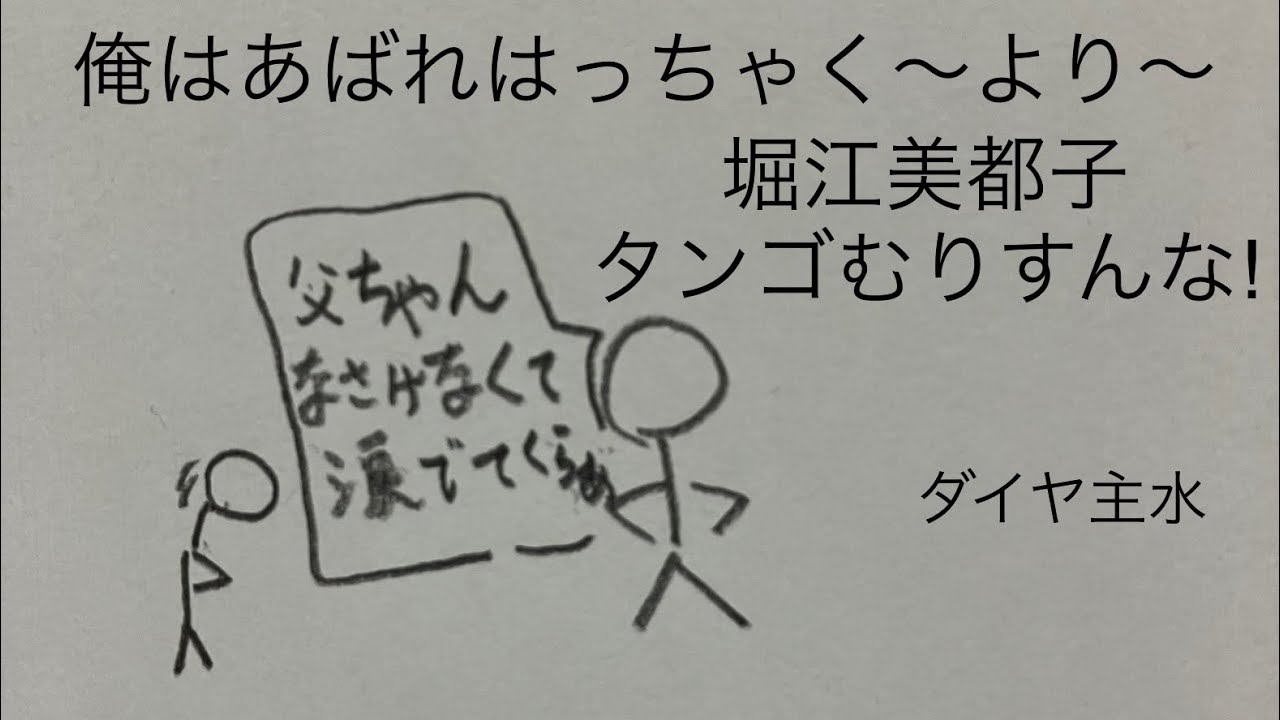 俺はあばれはっちゃく〜より〜
堀江美都子
タンゴむりすんな!
父ちゃん
なさけなくて
涙でてくらぁ
ダイヤ主水